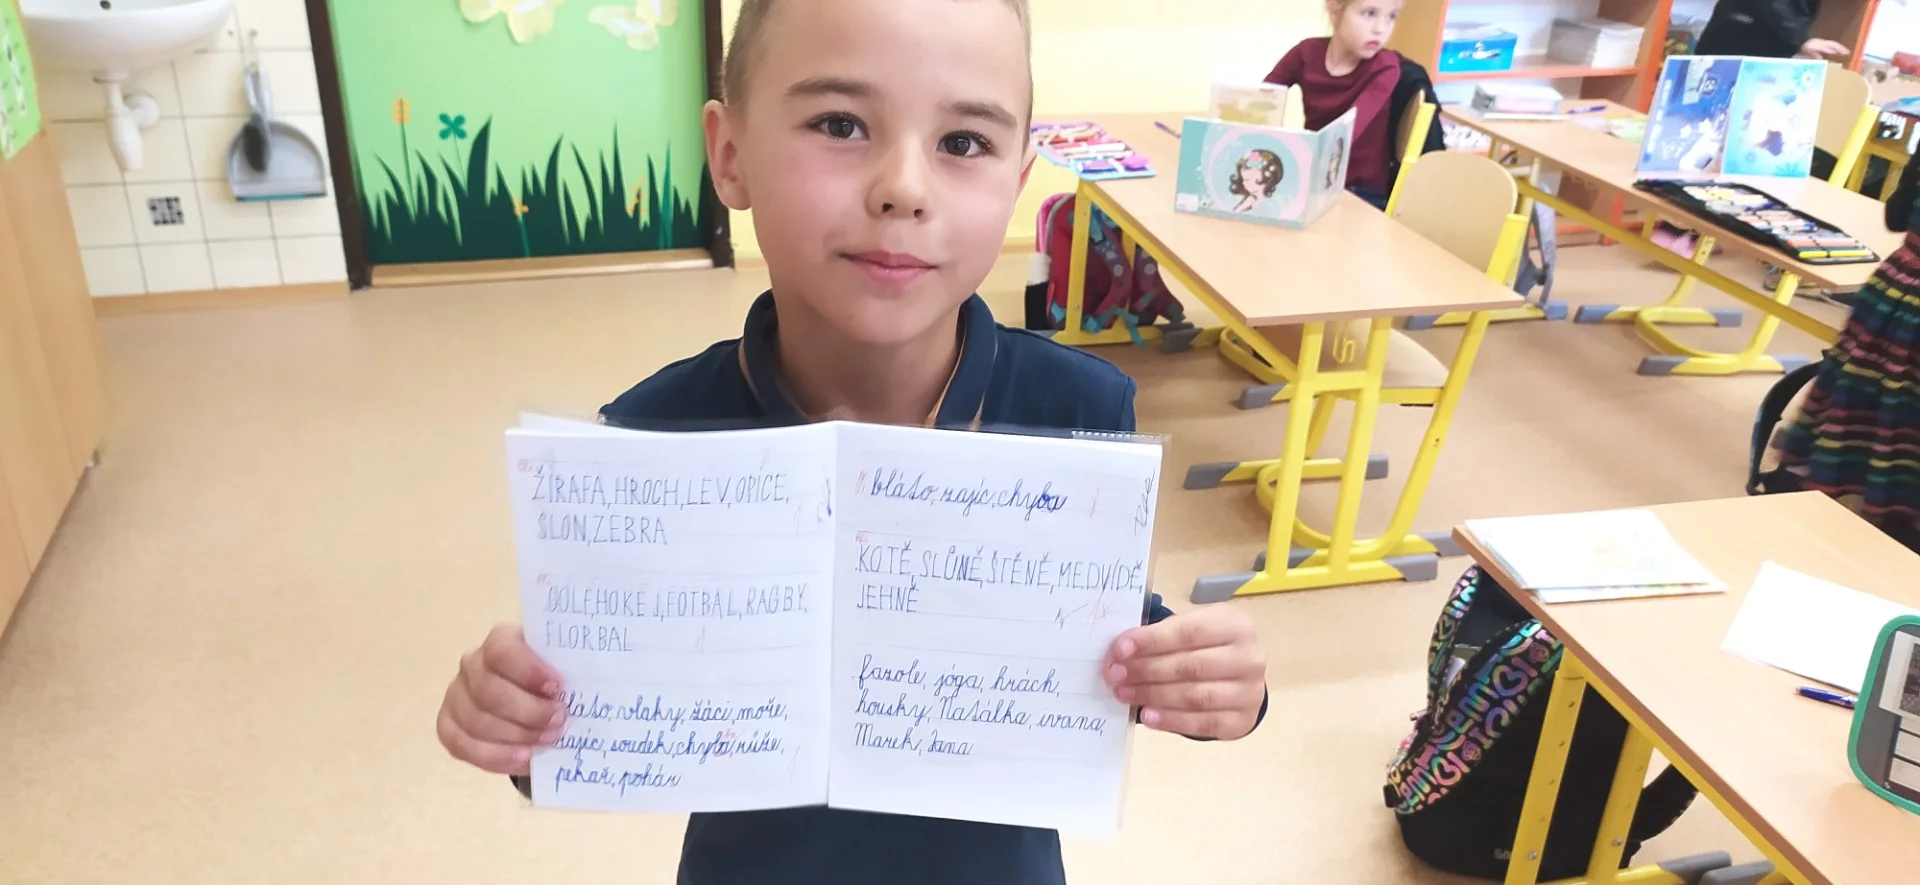 ŽIRAFA, HROCH, LEV, OPICE,
SLON, ZEBRA
GOLF, HOKEJ, FOTBAL, RAGBY,
FLORBAL
bláto, vlahy, žáci, moře,
zajíc, soudek, chyba, růže,
pekař, pohár
bláto, zajíc, chyba
KOTĚ, SLŮNĚ, ŠTĚNĚ, MEDVÍDĚ,
JEHNĚ
fazole, jóga, hrách,
housky, Natálka, ivana,
Marek, Jana